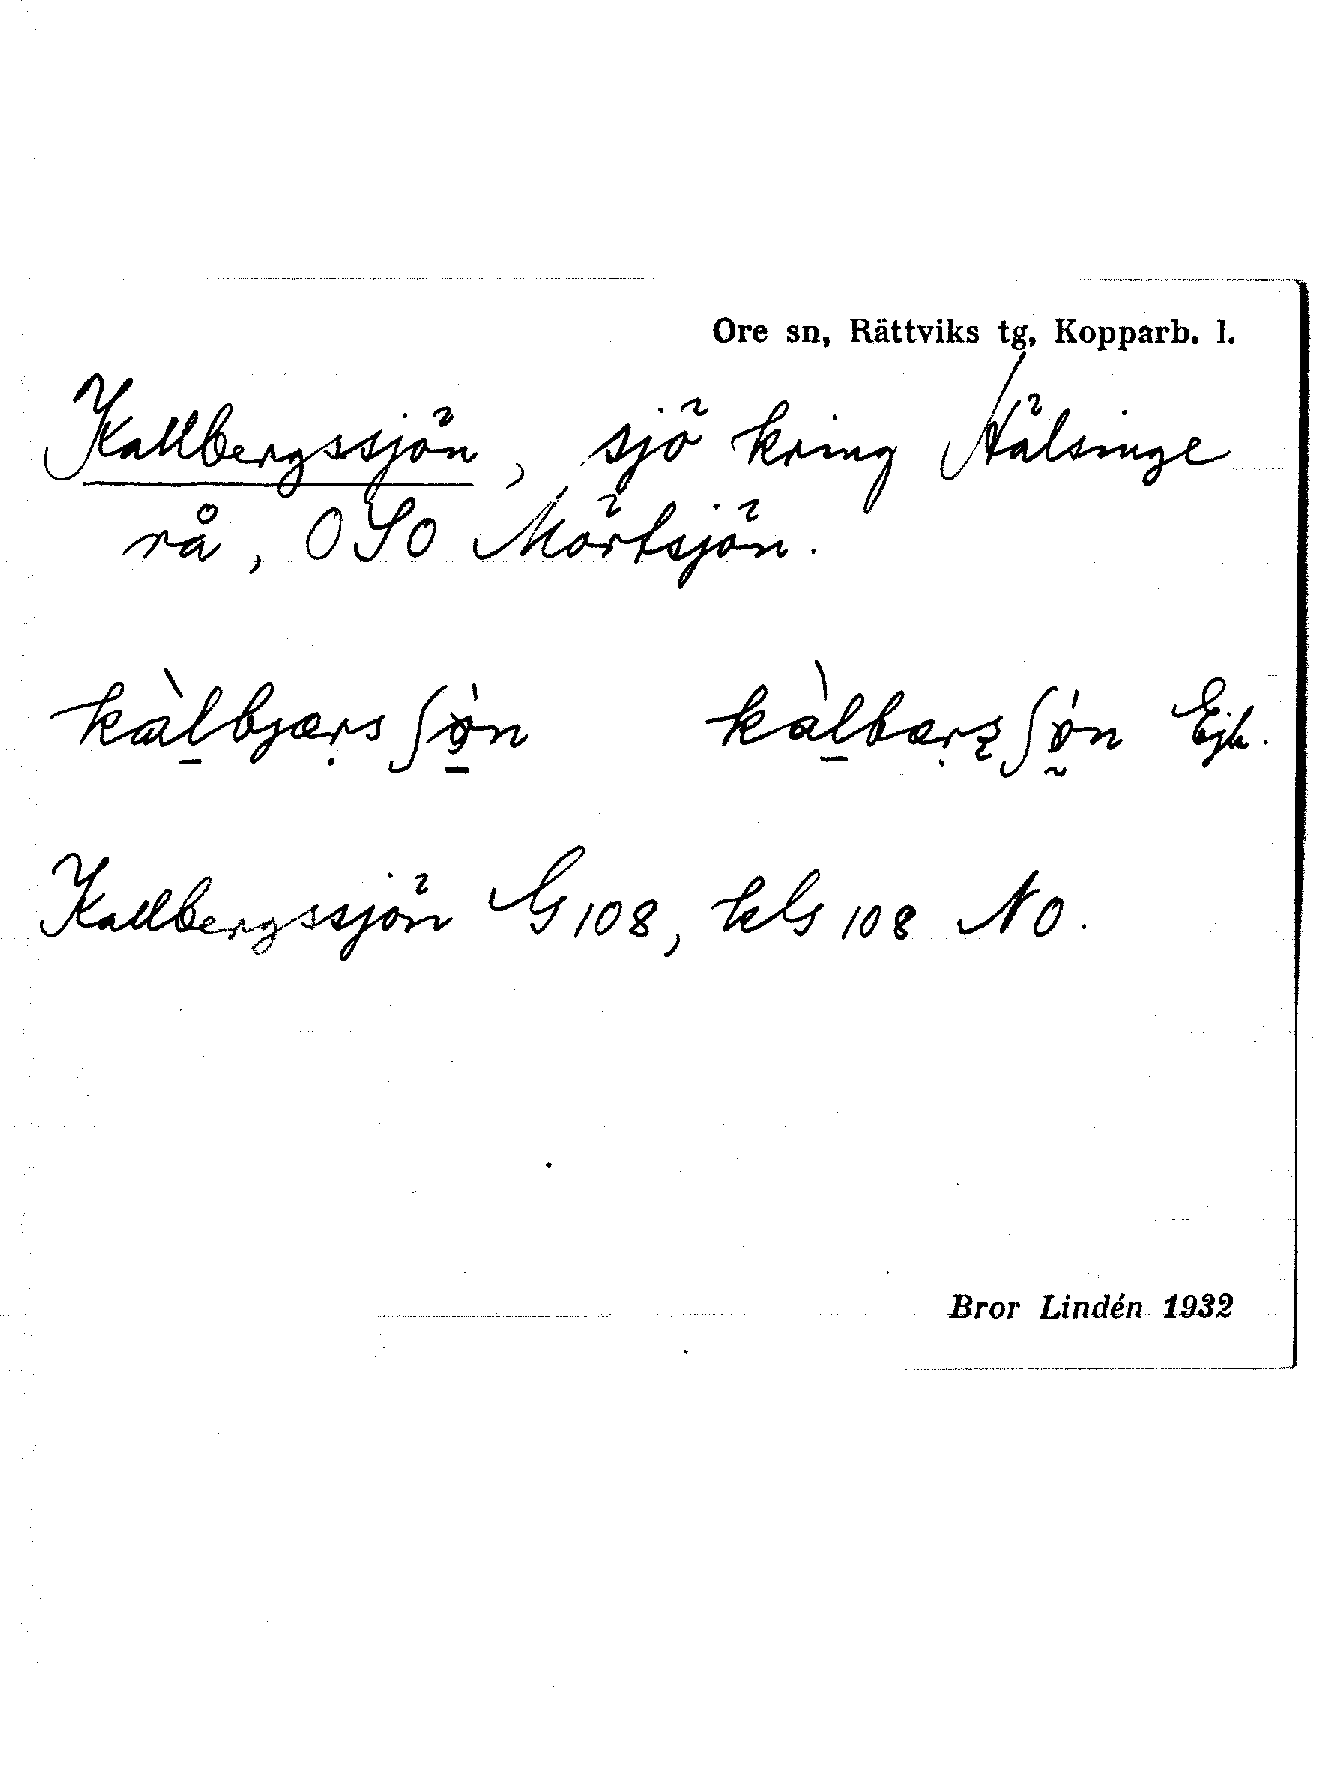 Ore sn, Rättviks tg, Kopparb. l.
Kallbergssjön, sjö kring Hälsinge
rå, OSO Mörtsjön.
kàlbjærs ʃø̀n kàlbærs ʃǿn Ejk.
Kallbergssjön G 108, kG 108 NO.
Bror Lindén 1932